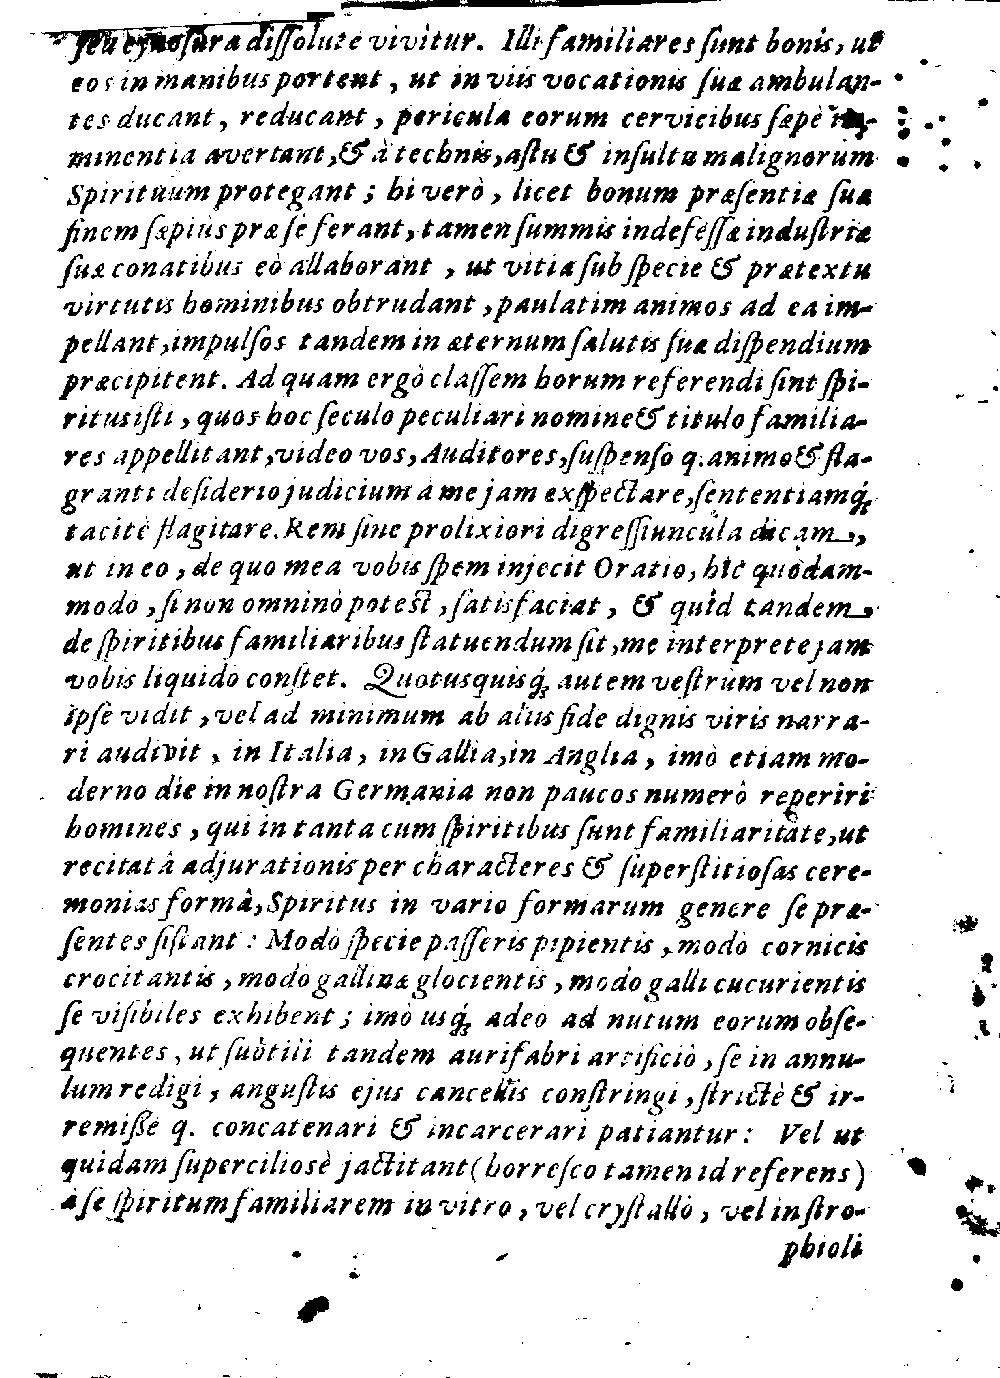 seu cynosura dissolute vivitur. Illi familiares sunt bonis, ut
eos in manibus portent, ut in viis vocationis suæ ambulan-
tes ducant, reducant, pericula eorum cervicibus sæpè im-
minentia avertant, & à technis, astu & insultu malignorum
Spirituum protegant; hi verò, licet bonum præsentiæ suæ
finem sæpiùs præ se ferant, tamen summis indefessæ industriæ
suæ conatibus eò allaborant, ut vitia sub specie & prætextu
virtutis hominibus obtrudant, paulatim animos ad ea im-
pellant, impulsos tandem in æternum salutis suæ dispendium
præcipitent. Ad quam ergò classem horum referendi sint spi-
ritus isti, quos hoc seculo peculiari nomine & titulo familia-
res appellitant, video vos, Auditores, suspenso q. animo & fla-
granti desiderio judicium à me jam exspectare, sententiamq́;
tacitè flagitare. Rem sine prolixiori digressiuncula dicam,
ut in eo, de quo mea vobis spem injecit Oratio, hîc quodam-
modo, si non omninò potest, satisfaciat, & quid tandem,
de spiritibus familiaribus statuendum sit, me interprete jam
vobis liquidò constet. Quotusquisq́; autem vestrûm vel non
ipse vidit, vel ad minimum ab aliis fide dignis viris narra-
ri audivit, in Italia, in Gallia, in Anglia, imò etiam mo-
derno die in nostra Germania non paucos numerò reperiri
homines, qui in tanta cum spiritibus sunt familiaritate, ut
recitatâ adjurationis per characteres & superstitiosas cere-
monias formâ, Spiritus in vario formarum genere se præ-
sentes sistant: Modò specie passeris pipientis, modò cornicis
crocitantis, modò gallinæ glocientis, modo galli cucurientis
se visibiles exhibent; imò usq́; adeo ad nutum eorum obse-
quentes, ut subtili tandem aurifabri artificiò, se in annu-
lum redigi, angustis ejus cancellis constringi, strictè & ir-
remißè q. concatenari & incarcerari patiantur: Vel ut
quidam superciliosè jactitant (horresco tamen id referens)
à se spiritum familiarem in vitro, vel crystallò, vel in stro-
phioli